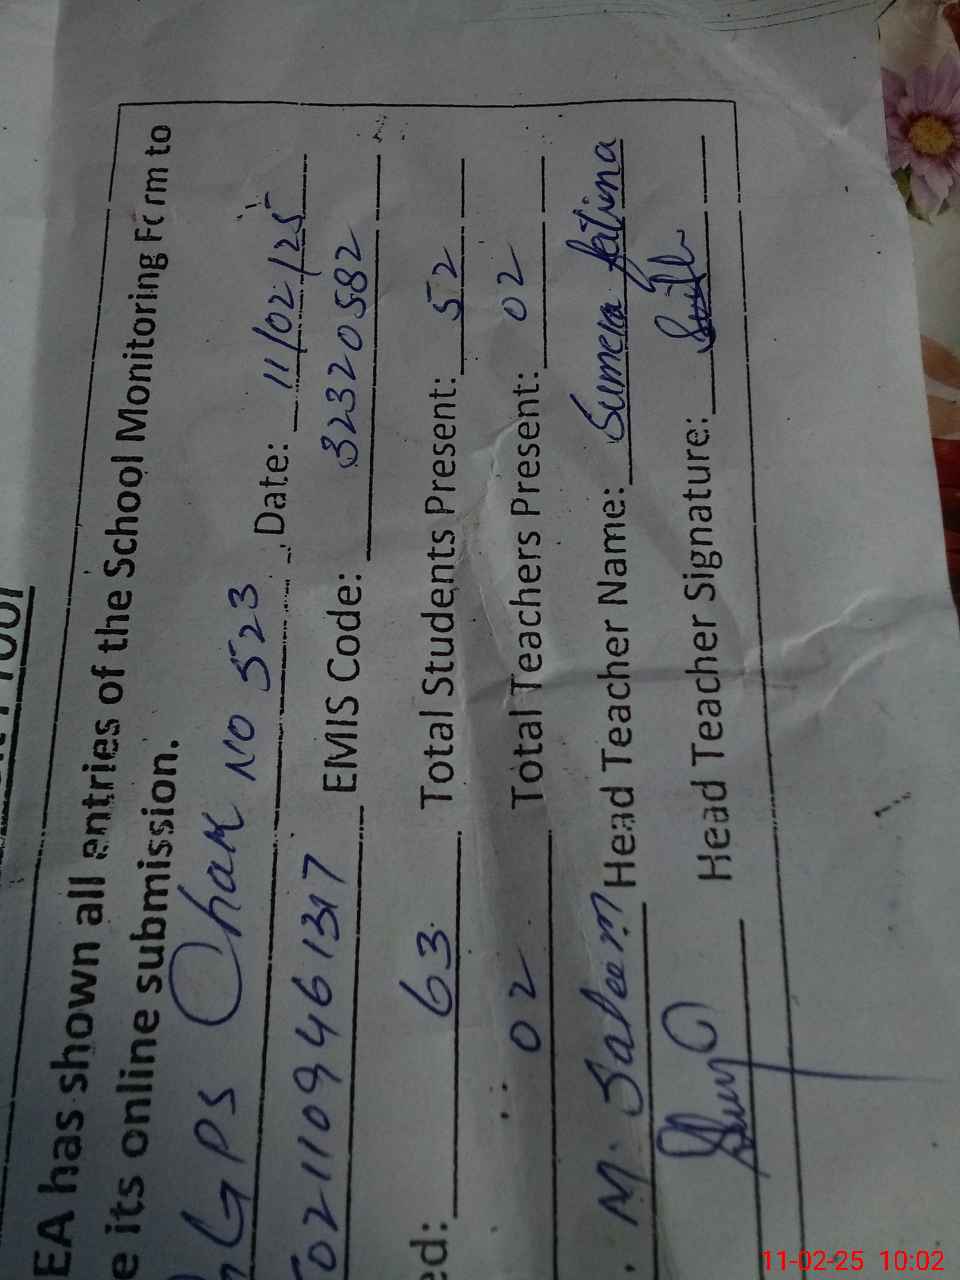 EA has shown all entries of the School Monitoring Form to
e its online submission.
GPS Chak NO 523 Date: 11/02/25
021109461317 EMIS Code: 32320582
ed: 63 Total Students Present: 52
02 Total Teachers Present: 02
M. Saleem Head Teacher Name: Sumera fatima
Head Teacher Signature:
11-02-25 10:02